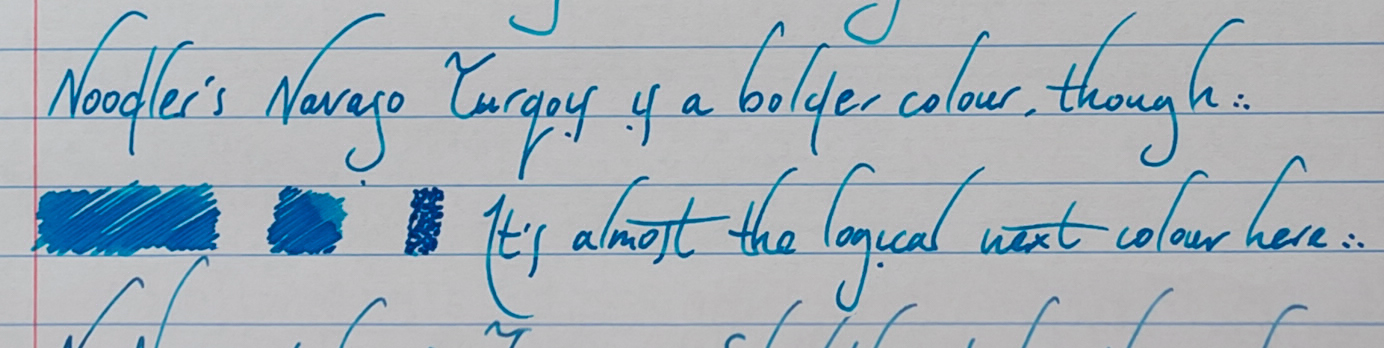 Noodler's Navajo Turqois is a bolder colour, though∴
It's almost the logical next colour here∴